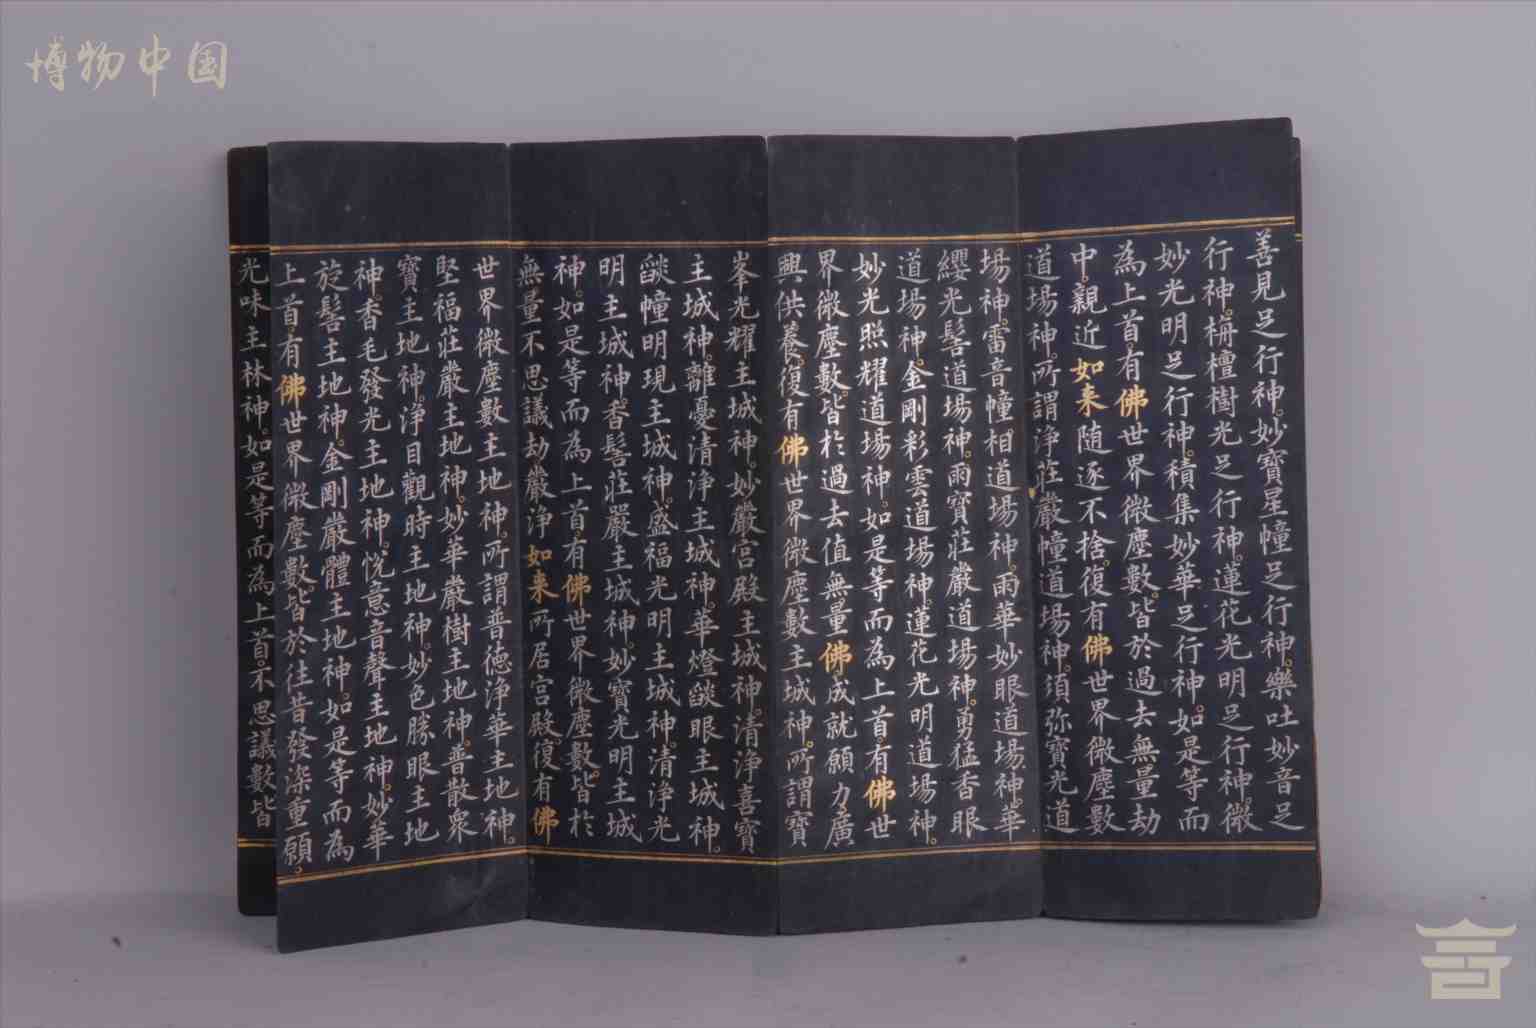 博物中国
善見足行神妙寶星幢足行神樂吐妙音足
行神栴檀樹光足行神蓮花光明足行神微
妙光明足行神積集妙華足行神如是等而
為上首有佛世界微塵數皆於過去無量劫
中親近如來随逐不捨復有佛世界微塵數
道場神所謂淨莊嚴幢道場神須弥寶光道
場神雷音幢相道場神雨華妙眼道場神華
纓光髻道場神雨寶莊嚴道場神勇猛香眼
道場神金剛彩雲道場神蓮花光明道場神
妙光照耀道場神如是等而為上首有佛世
界微塵數皆於過去值無量佛成就願力廣
興供養復有佛世界微塵數主城神所謂寶
峯光耀主城神妙嚴宮殿主城神清淨喜寶
主城神離憂清淨主城神華燈燄眼主城神
燄幢明現主城神盛福光明主城神清淨光
明主城神香髻莊嚴主城神妙寶光明主城
神如是等而為上首有佛世界微塵數皆於
無量不思議劫嚴淨如來所居宮殿復有佛
世界微塵數主地神所謂普德淨華主地神
堅福莊嚴主地神妙華嚴樹主地神普散衆
寶主地神淨目觀時主地神妙色勝眼主地
神香毛發光主地神悅意音聲主地神妙華
旋髻主地神金剛嚴體主地神如是等而為
上首有佛世界微塵數皆於往昔發深重願
光味主林神如是等而為上首不思議數皆